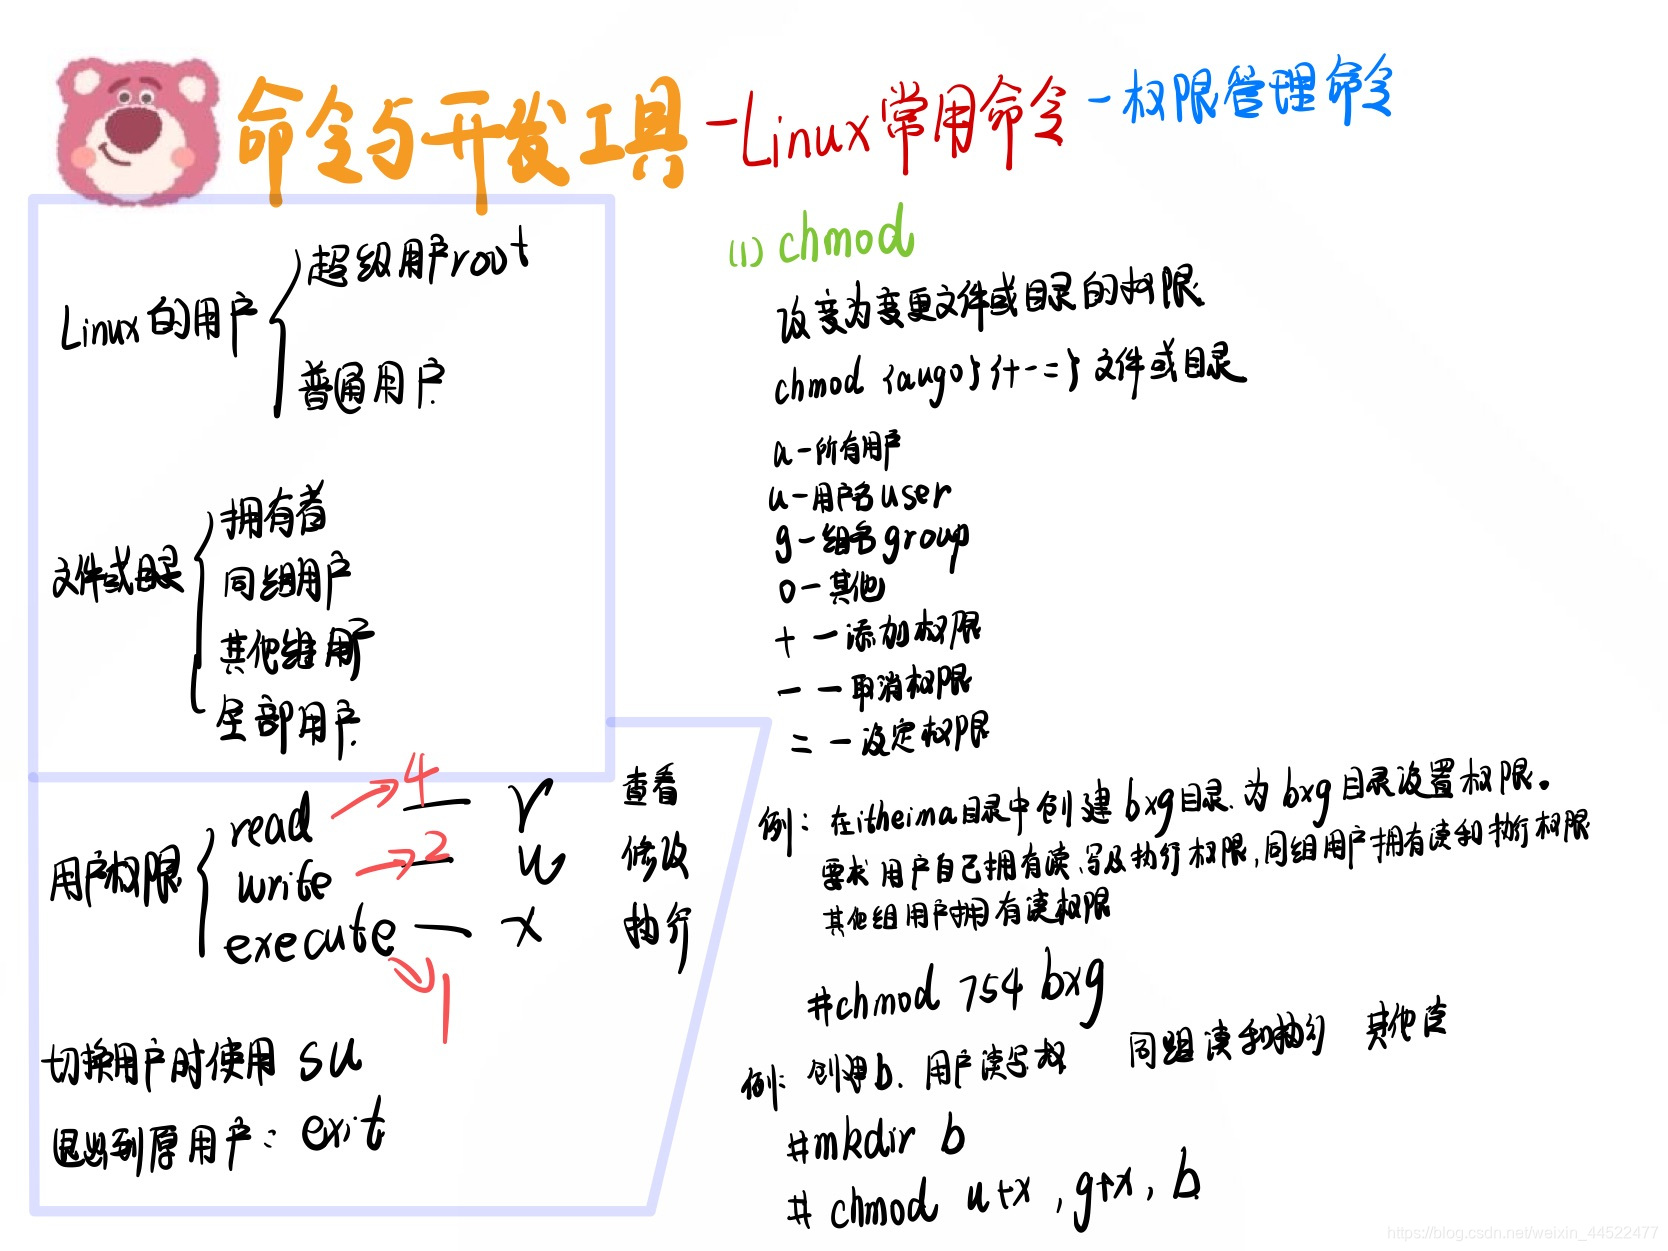 命令与开发工具-Linux常用命令-权限管理命令
Linux的用户
超级用户root
普通用户.
文件或目录
拥有者
同组用户
其他组用户
全部用户.
用户权限
read → 4 — r 查看
write → 2 — w 修改
execute — x 执行
1
切换用户时使用 su
退出到原用户: exit
(1) chmod
改变为变更文件或目录的权限
chmod {augo}{+-=} 文件或目录
a-所有用户
u-用户名user
g-组名group
o-其他
+ -添加权限
- -取消权限
= -设定权限
例: 在itheima目录中创建bxg目录.为bxg目录设置权限。
要求 用户自己拥有读、写及执行权限,同组用户拥有读和执行权限
其他组用户拥有读权限
#chmod 754 bxg
例: 创建b. 用户读写权 同组读和执行 其他读
#mkdir b
# chmod u+x ,g+x, b
https://blog.csdn.net/weixin_44522477